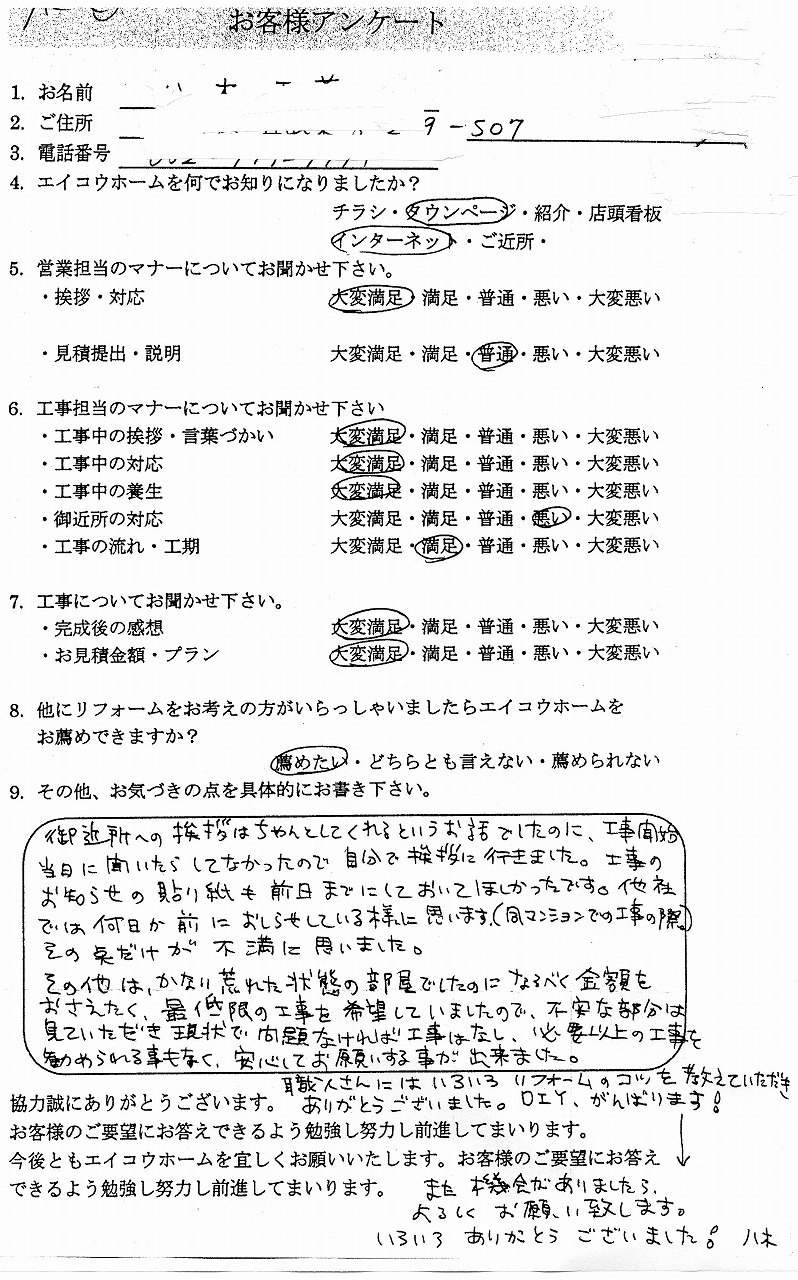 お客様アンケート
1. お名前
2. ご住所 9-507
3. 電話番号
4. エイコウホームを何でお知りになりましたか？
チラシ・タウンページ・紹介・店頭看板
インターネット・ご近所・
5. 営業担当のマナーについてお聞かせ下さい。
・挨拶・対応 大変満足・満足・普通・悪い・大変悪い
・見積提出・説明 大変満足・満足・普通・悪い・大変悪い
6. 工事担当のマナーについてお聞かせ下さい
・工事中の挨拶・言葉づかい 大変満足・満足・普通・悪い・大変悪い
・工事中の対応 大変満足・満足・普通・悪い・大変悪い
・工事中の養生 大変満足・満足・普通・悪い・大変悪い
・御近所の対応 大変満足・満足・普通・悪い・大変悪い
・工事の流れ・工期 大変満足・満足・普通・悪い・大変悪い
7. 工事についてお聞かせ下さい。
・完成後の感想 大変満足・満足・普通・悪い・大変悪い
・お見積金額・プラン 大変満足・満足・普通・悪い・大変悪い
8. 他にリフォームをお考えの方がいらっしゃいましたらエイコウホームを
お薦めできますか？
薦めたい・どちらとも言えない・薦められない
9. その他、お気づきの点を具体的にお書き下さい。
御近所への挨拶はちゃんとしてくれるというお話でしたのに、工事開始
当日に聞いたらしてなかったので自分で挨拶に行きました。工事の
お知らせの貼り紙も前日までにしておいてほしかったです。他社
では何日か前におしらせしている様に思います。(同マンションでの工事の際。)
その点だけが不満に思いました。
その他は、かなり荒れた状態の部屋でしたのになるべく金額を
おさえたく、最低限の工事を希望していましたので、不安な部分は
見ていただき現状で問題なければ工事はなし、必要以上の工事を
勧められる事もなく、安心してお願いする事が出来ました。
職人さんにはいろいろリフォームのコツを教えていただき
協力誠にありがとうございます。 ありがとうございました。DIY、がんばります!
お客様のご要望にお答えできるよう勉強し努力し前進してまいります。
今後ともエイコウホームを宜しくお願いいたします。お客様のご要望にお答え
できるよう勉強し努力し前進してまいります。 また機会がありましたら、
よろしくお願い致します。
いろいろありがとうございました! 八木